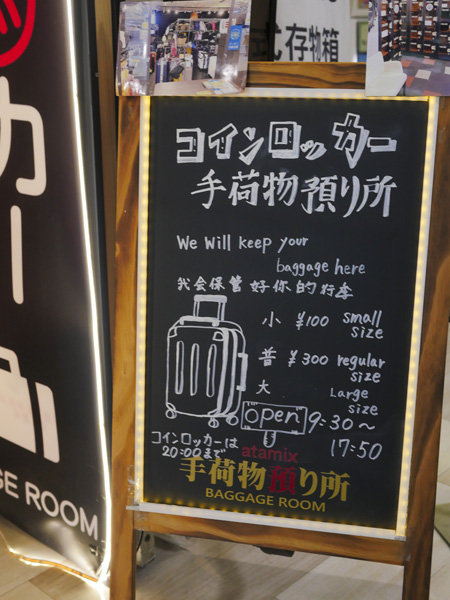 式存物箱
コインロッカー
手荷物預り所
We will keep your
baggage here
我会保管好你的行李
小 ¥100 small
size
普 ¥300 regular
size
大 Large
size
open 9:30～
17:50
コインロッカーは
20:00まで
atamix
手荷物預り所
BAGGAGE ROOM
カー
GE ROOM